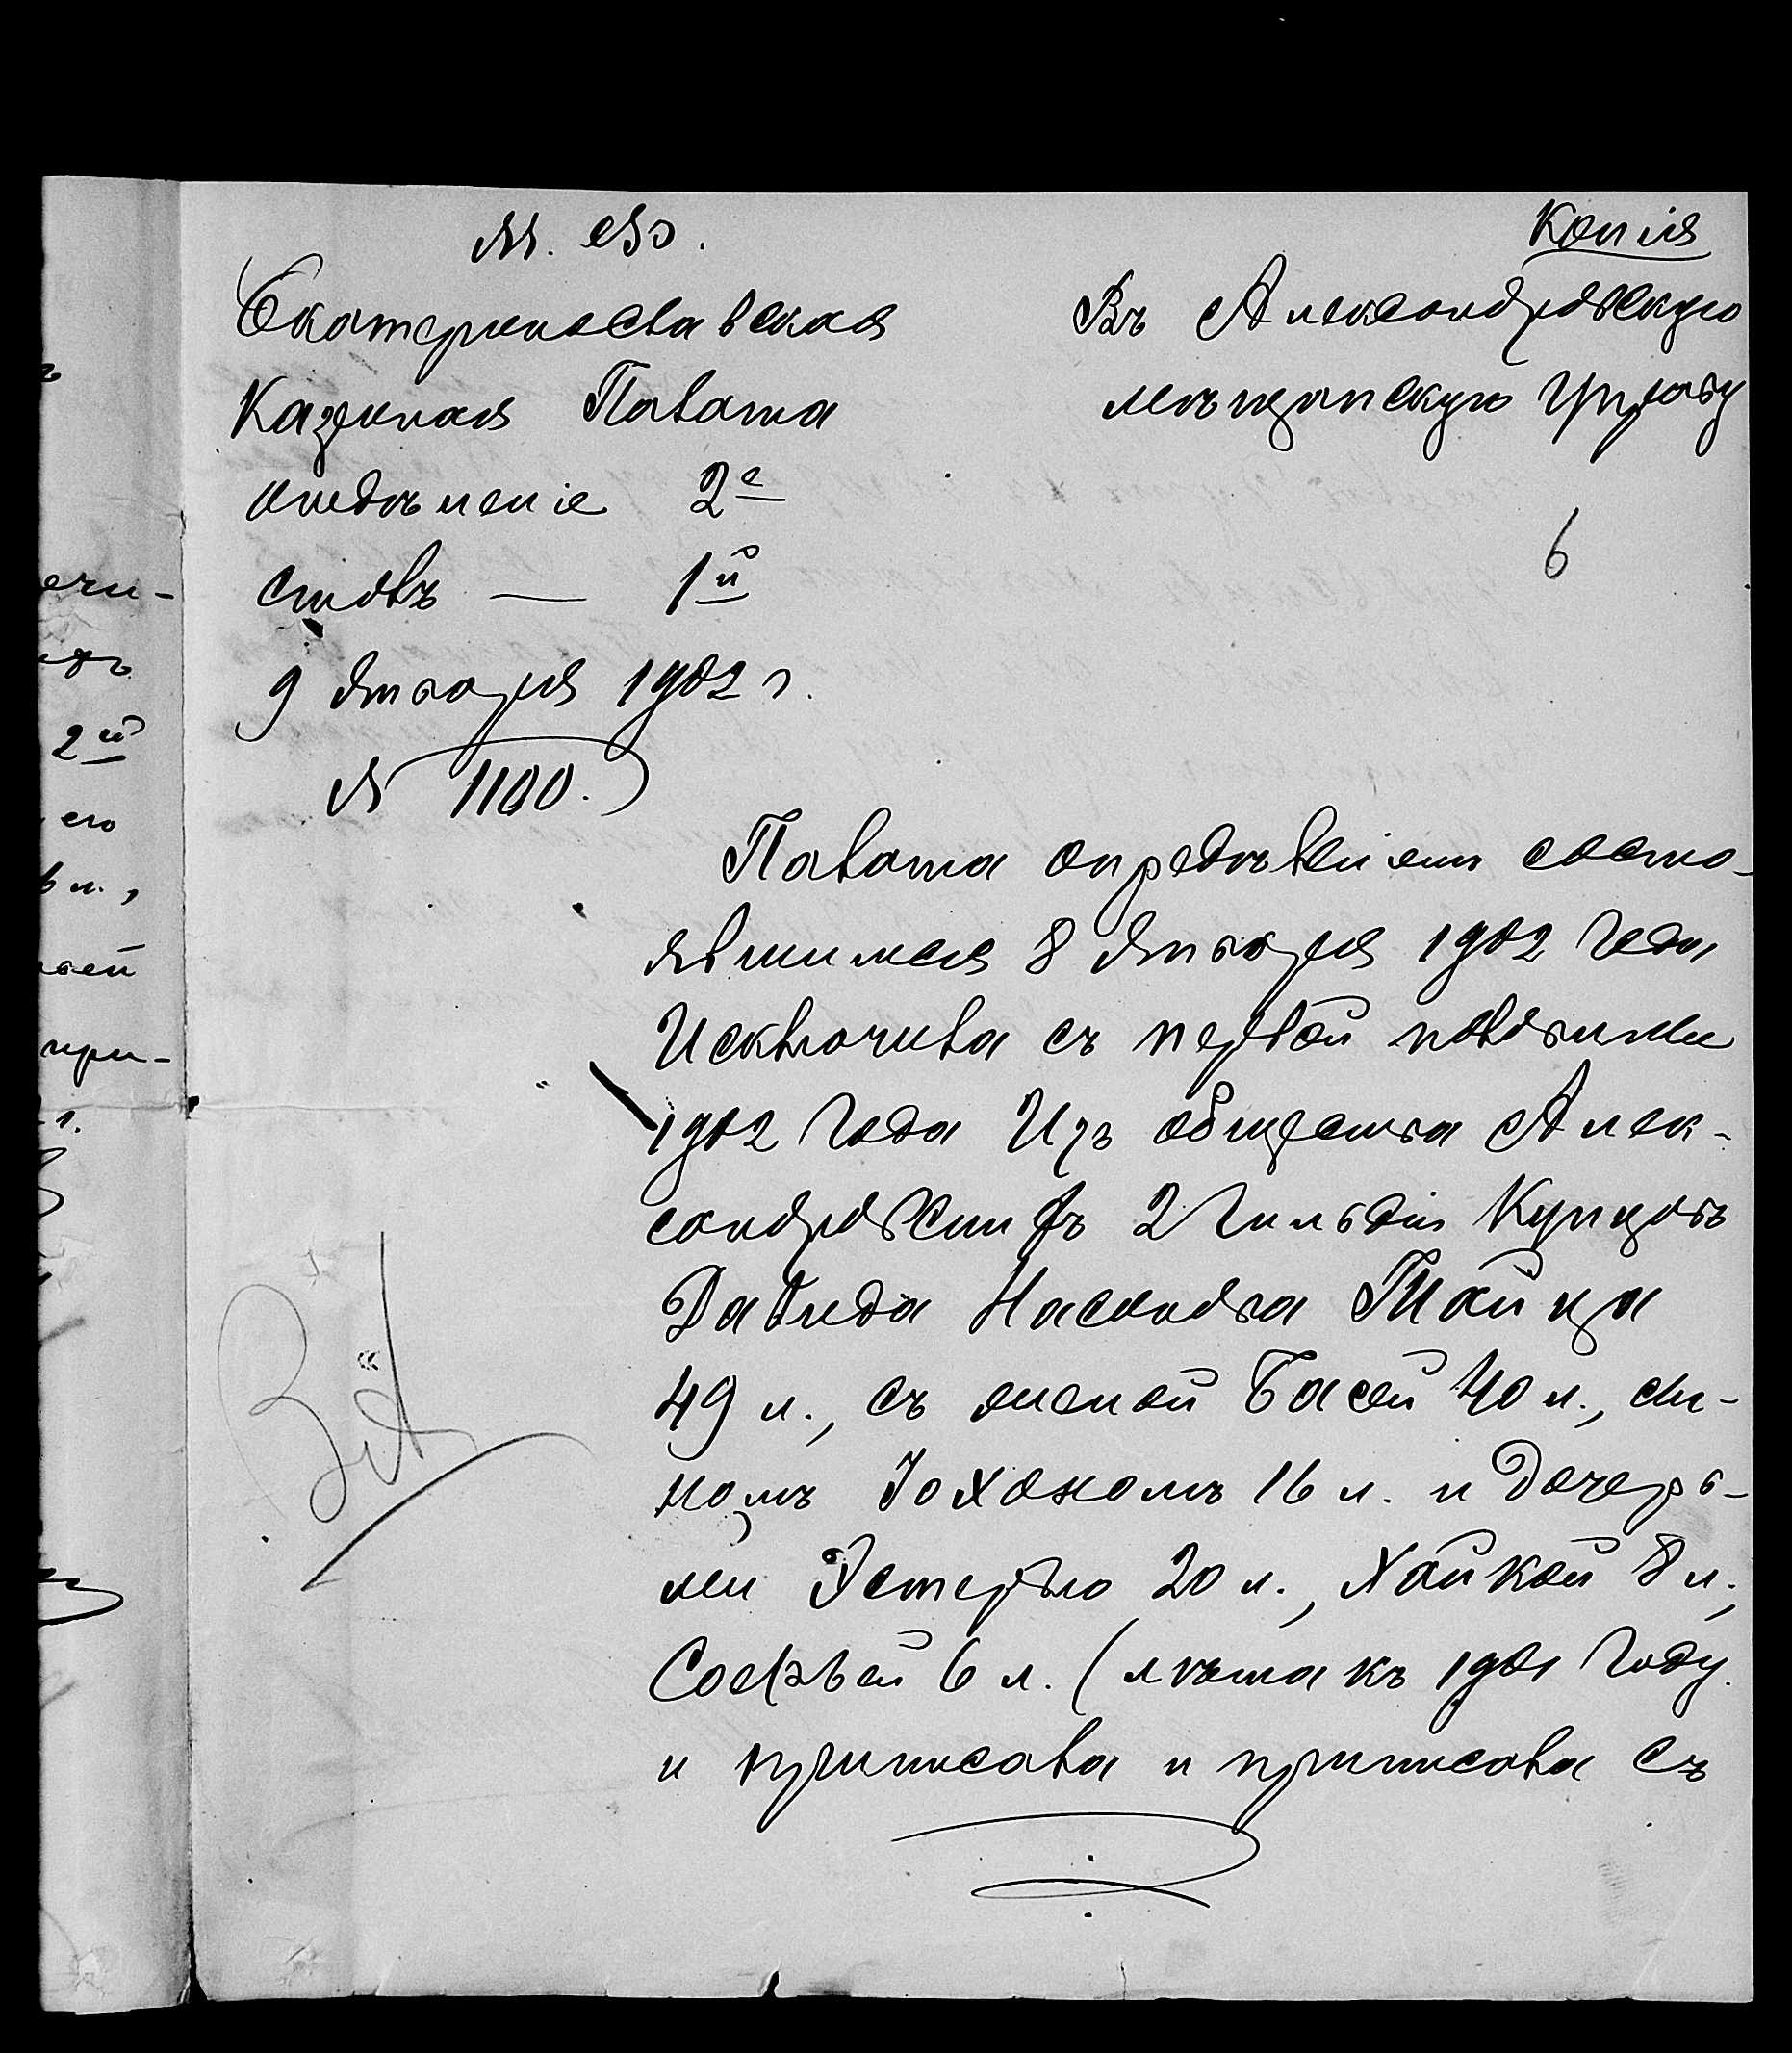 Копія
М. Ф.
Екатеринославская
Казенная Палата
отдѣленіе 2е
столъ — 1й
9 января 1902 г.
№ 1100.
Въ Александровскую
мѣщанскую Управу
6
Палата опредѣленіем состо-
явшимся 8 января 1902 года
Исключила съ первой половины
1902 года Изъ общества Алек-
сандровскихъ 2 гильдіи Купцовъ
Давида Насонова Тайца
49 л., съ женой Басей 40 л., сы-
номъ Іохономъ 16 л. и дочерь-
ми Эстерью 20 л., Хайкой 8 л.,
Софьей 6 л. (лѣта къ 1901 году.
и приписала и приписала съ
ечи-
2й
его
л.,
ей
при-